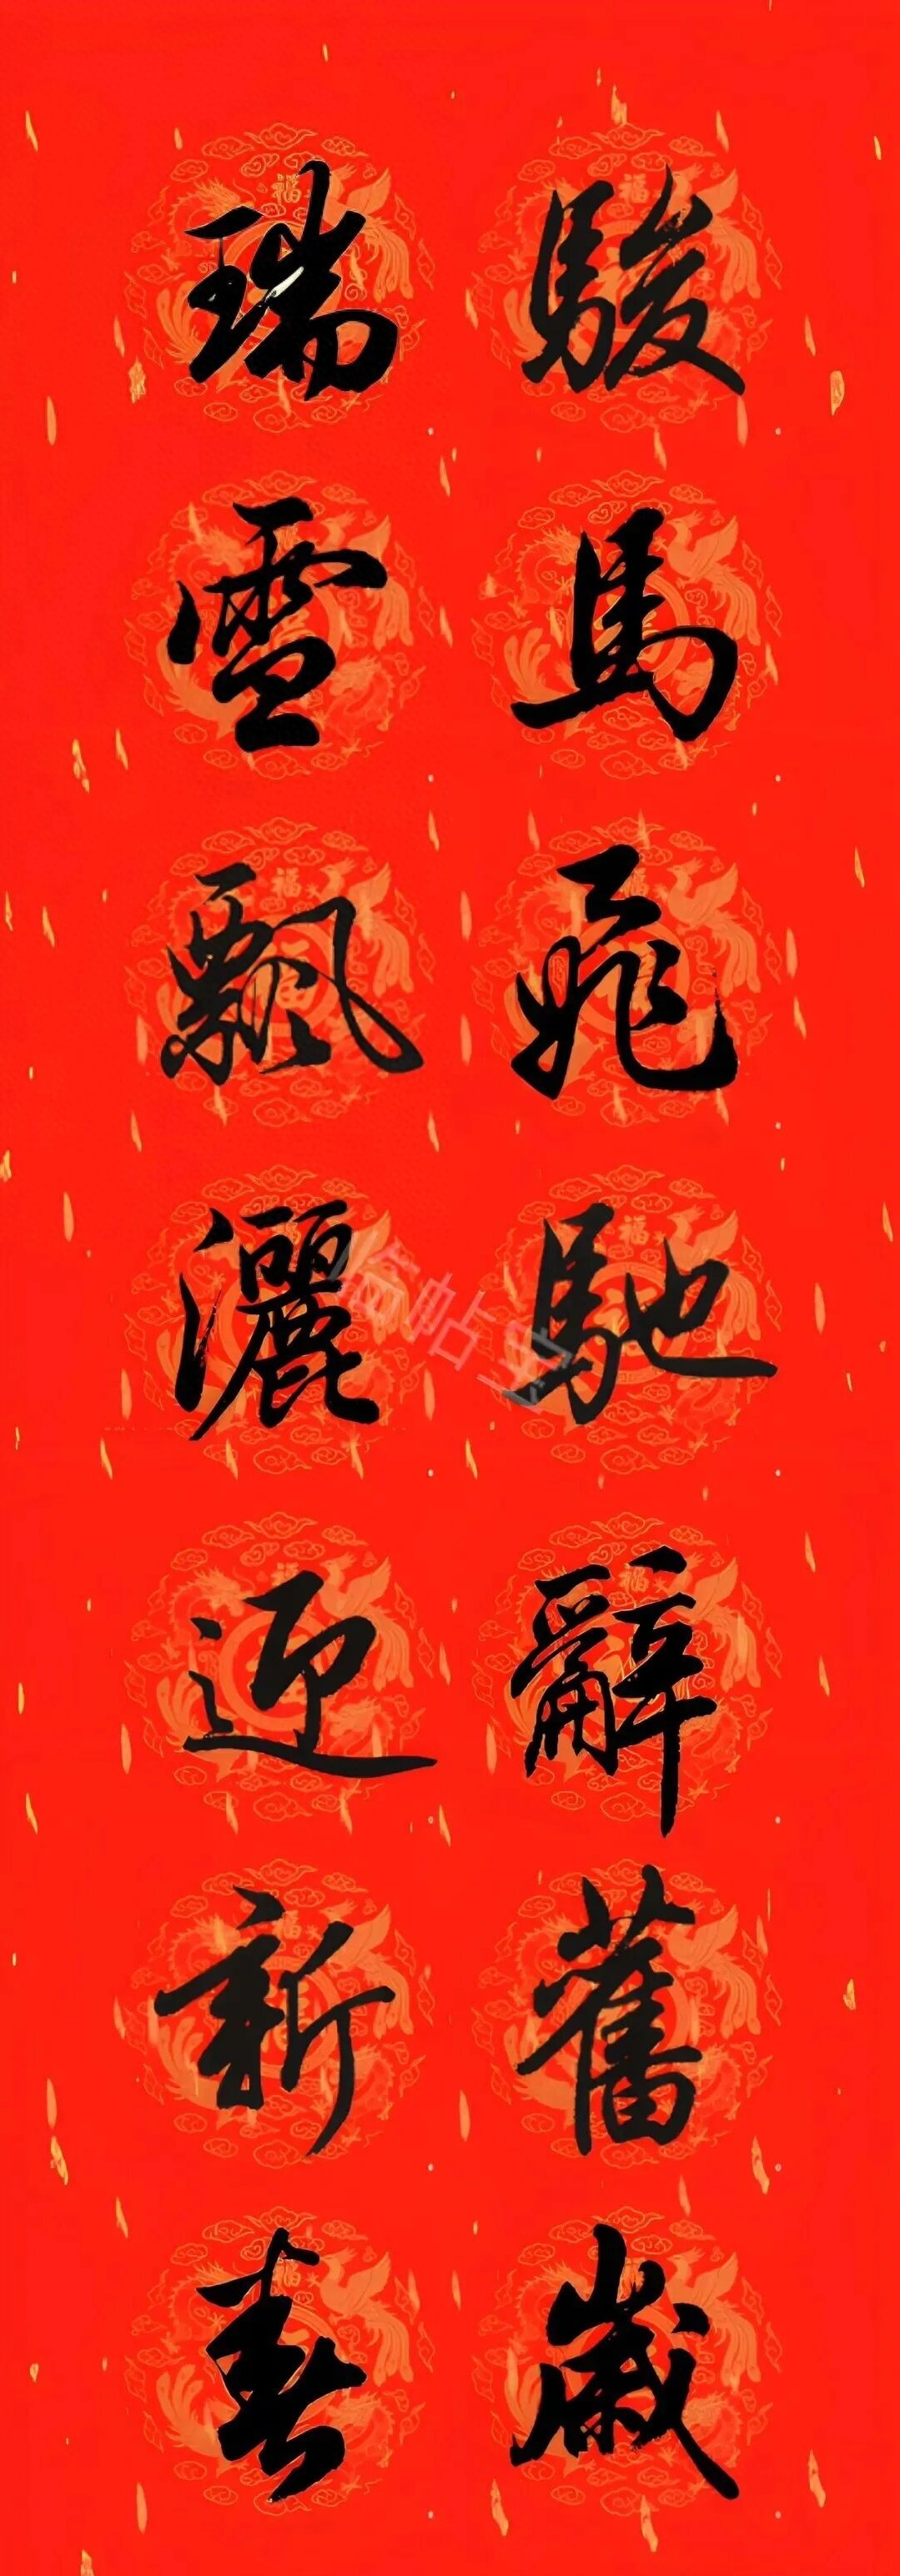 駿馬飛馳辭舊歲
瑞雪飄灑迎新春
临帖宝